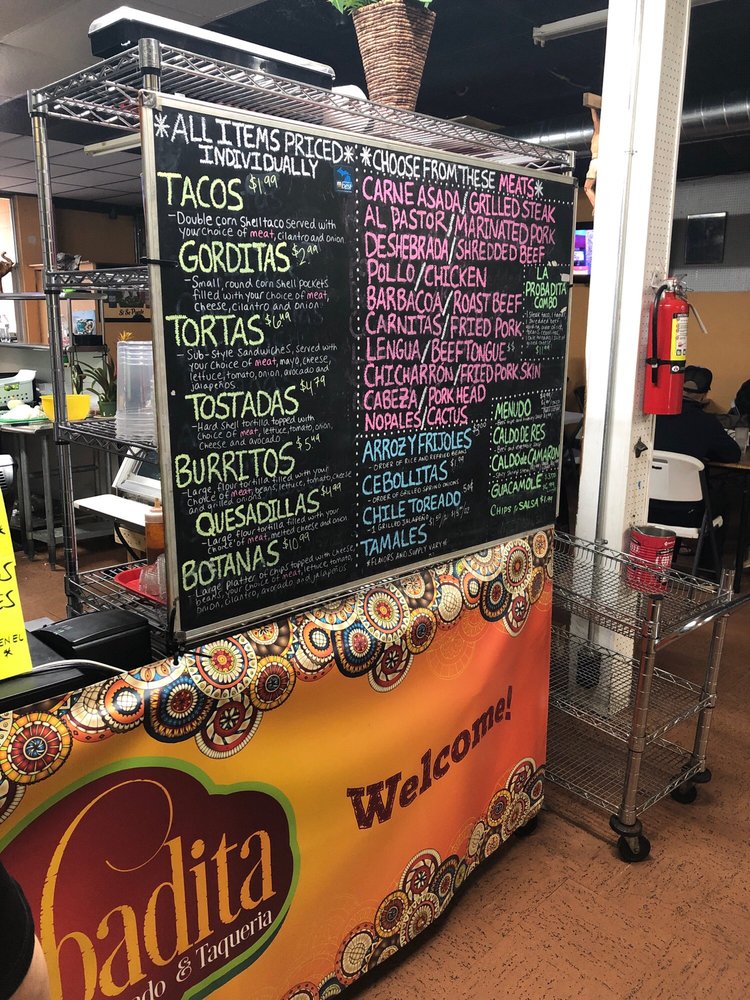 *ALL ITEMS PRICED
INDIVIDUALLY*
TACOS $1.99
-Double corn shell taco served with
your choice of meat, cilantro and onion
GORDITAS $2.99
-Small round corn shell pockets
filled with your choice of meat,
cheese, cilantro and onion
TORTAS $6.49
-Sub-style sandwiches, served with
your choice of meat, mayo, cheese,
lettuce, tomato, onion, avocado and
jalapeños
TOSTADAS $4.79
-Hard shell tortilla topped with
choice of meat, lettuce, tomato, onion,
cheese and avocado
BURRITOS
-Large, flour tortilla filled with your
choice of meat, beans, lettuce, tomato, cheese
and grilled onions
QUESADILLAS $4.99
-Large flour tortilla, filled with your
choice of meat, melted cheese and onion
BOTANAS $10.99
-Large platter of chips topped with cheese,
beans, your choice of meat, lettuce, tomato,
onion, cilantro, avocado and jalapeños
*CHOOSE FROM THESE MEATS*
CARNE ASADA/GRILLED STEAK
AL PASTOR/MARINATED PORK
DESHEBRADA/SHREDDED BEEF
POLLO/CHICKEN
BARBACOA/ROAST BEEF
CARNITAS/FRIED PORK
LENGUA/BEEF TONGUE
CHICHARRÓN/FRIED PORK SKIN
CABEZA/PORK HEAD
NOPALES/CACTUS
ARROZ Y FRIJOLES
-ORDER OF RICE AND REFRIED BEANS
CEBOLLITAS $1.99
-ORDER OF GRILLED SPRING ONIONS
CHILE TOREADO
-1 GRILLED JALAPEÑO
TAMALES
*FLAVORS AND SUPPLY VARY*
LA
PROBADITA
COMBO
MENUDO
CALDO DE RES
CALDO de CAMARON
GUACAMOLE
CHIPS & SALSA
Welcome!
badita
do & Taqueria